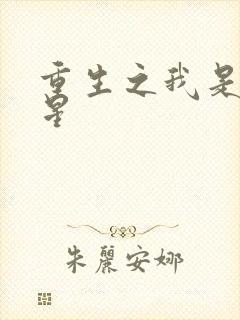 重生之我是
星
朱麗安娜